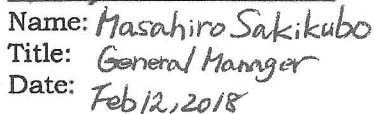 Name: Masahiro Sakikubo
Title: General Manager
Date: Feb 12, 2018